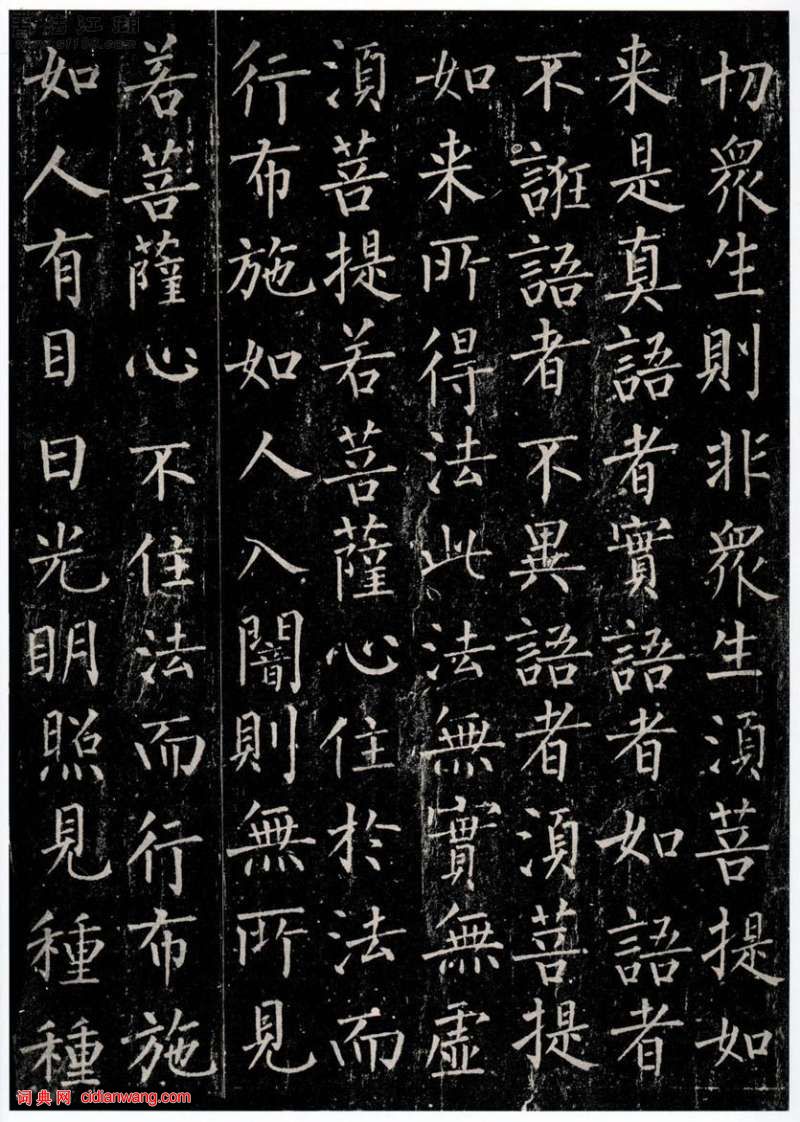 切眾生則非眾生須菩提如
来是真語者實語者如語者
不誑語者不異語者須菩提
如来所得法此法無實無虛
須菩提若菩薩心住於法而
行布施如人入闇則無所見
若菩薩心不住法而行布施
如人有目日光明照見種種
词典网 cidianwang.com